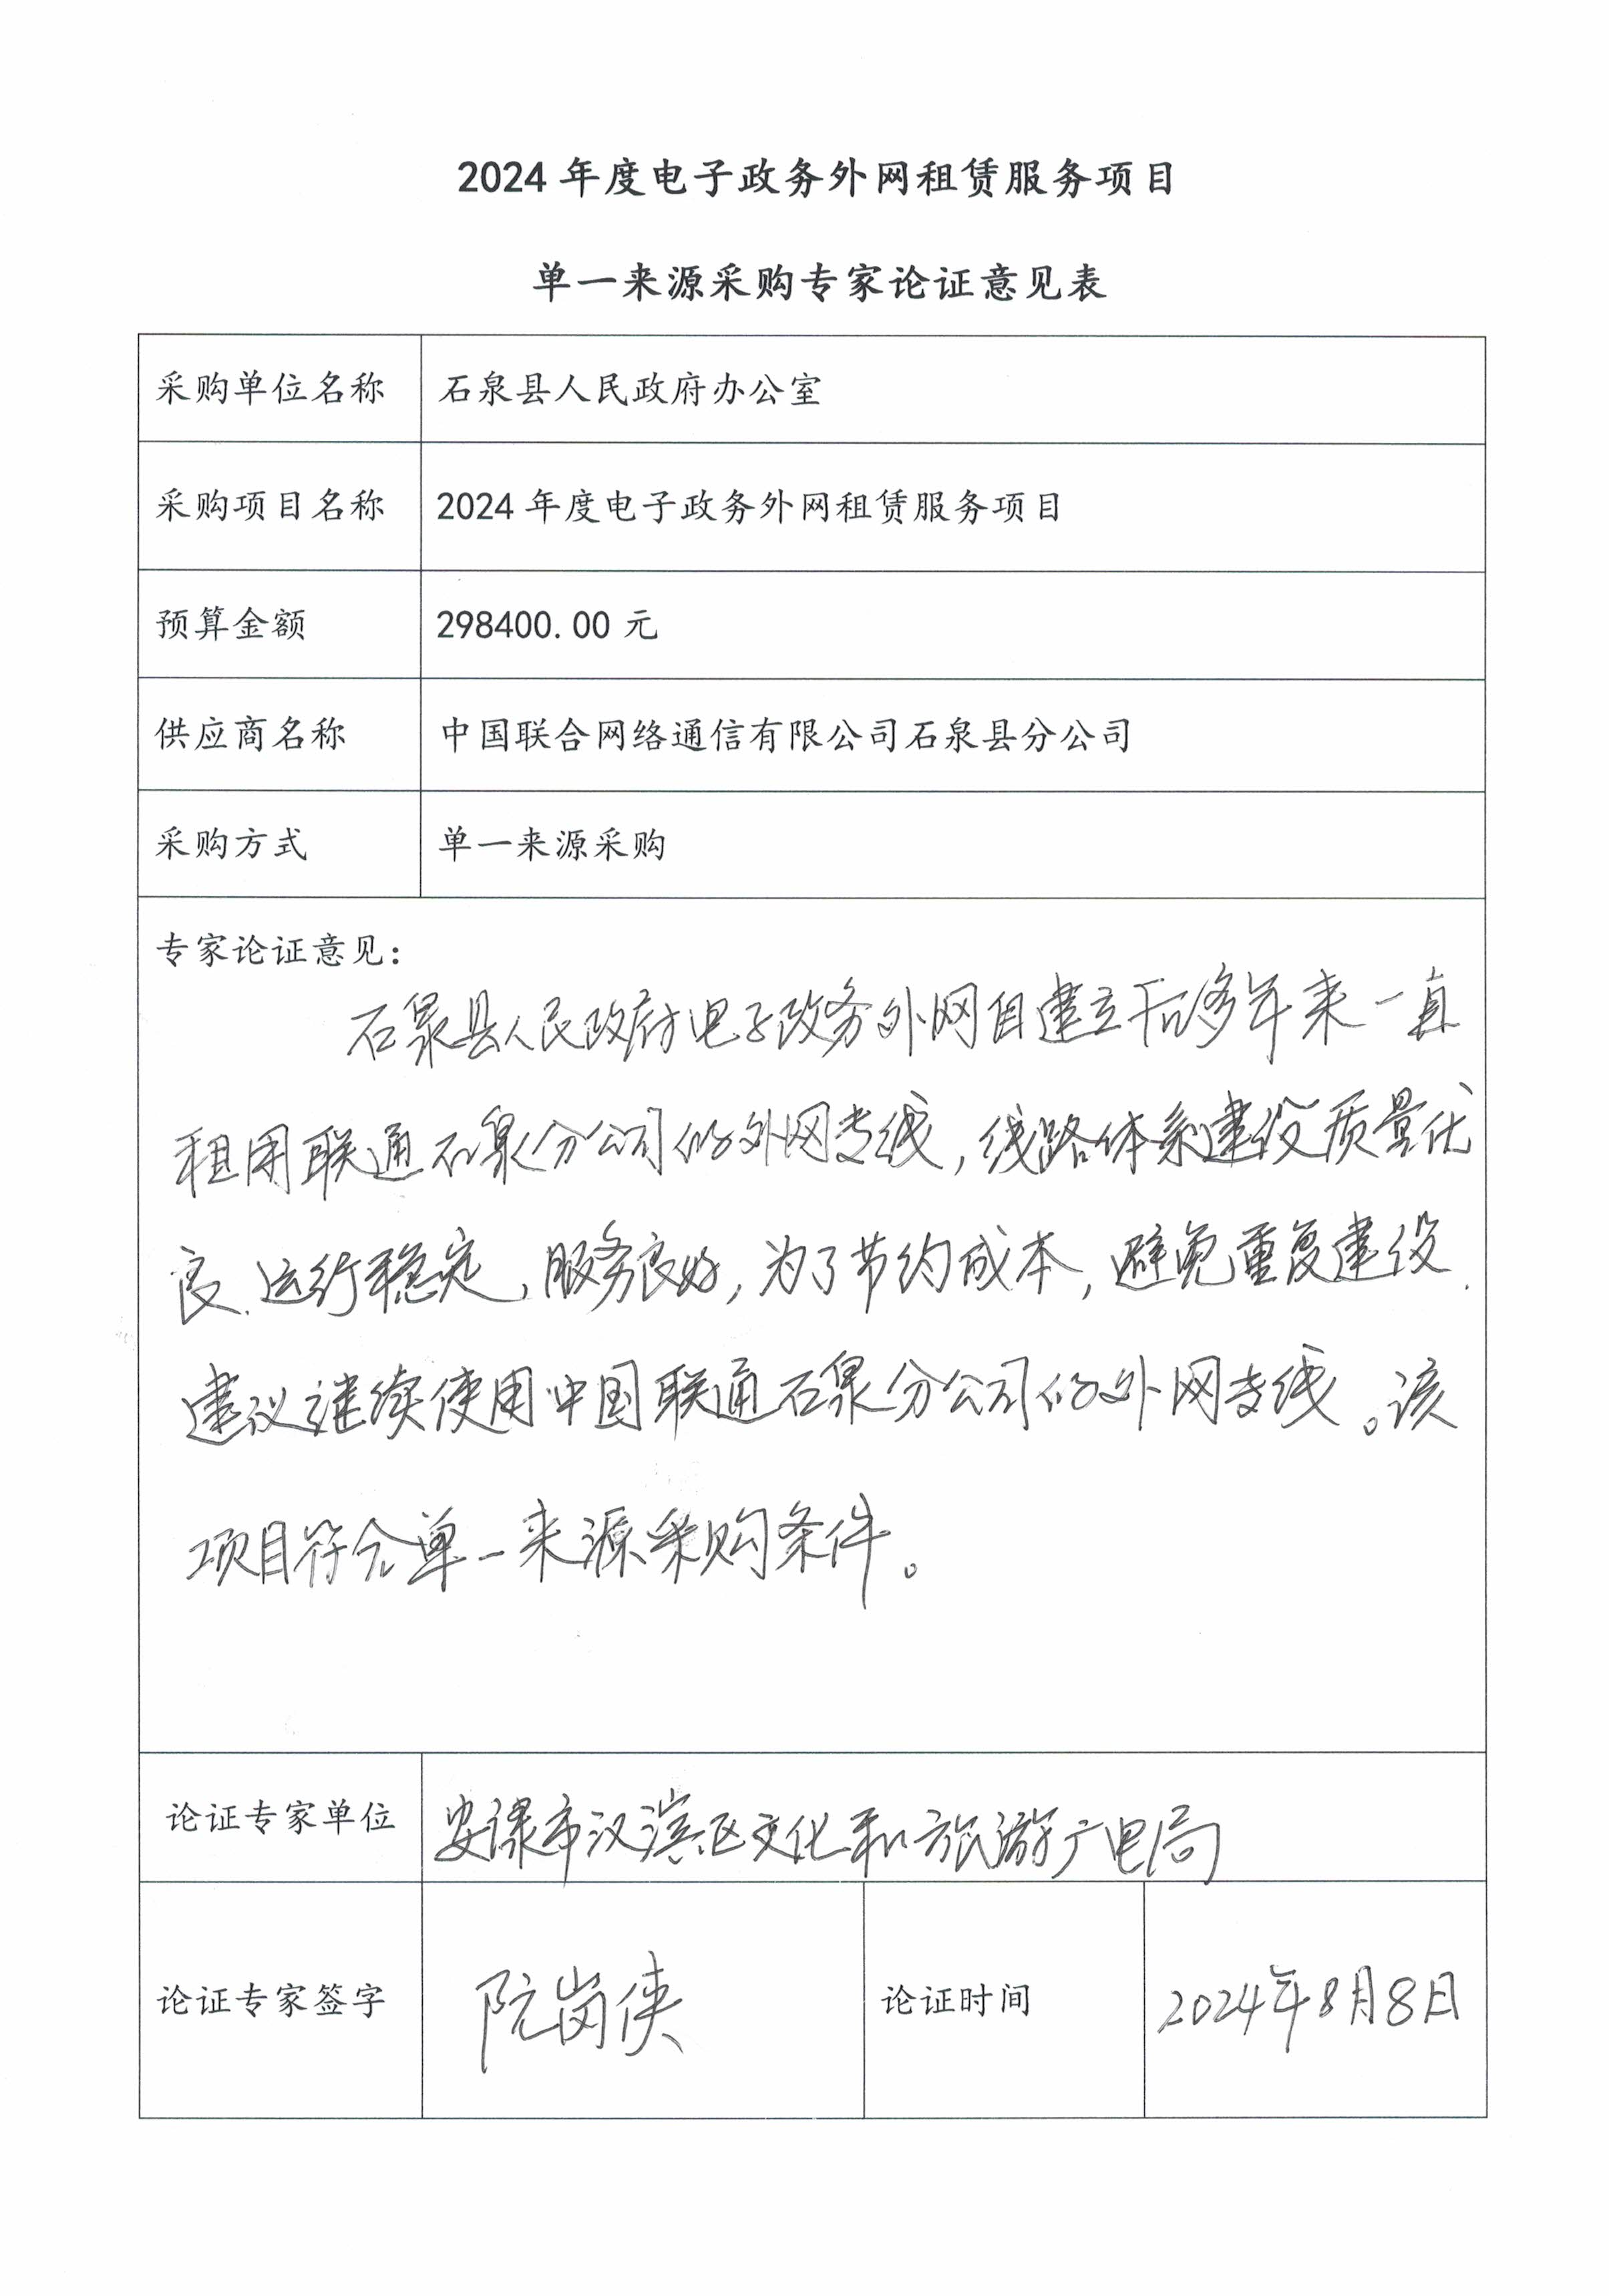 2024年度电子政务外网租赁服务项目
单一来源采购专家论证意见表
采购单位名称 石泉县人民政府办公室
采购项目名称 2024年度电子政务外网租赁服务项目
预算金额 298400.00元
供应商名称 中国联合网络通信有限公司石泉县分公司
采购方式 单一来源采购
专家论证意见:
石泉县人民政府电子政务外网自建立后多年来一直
租用联通石泉分公司的外网专线,线路体系建设质量优
良、运行稳定,服务良好,为了节约成本,避免重复建设,
建议继续使用中国联通石泉分公司的外网专线。该
项目符合单一来源采购条件。
论证专家单位 安康市汉滨区文化和旅游广电局
论证专家签字 阮岗侠 论证时间 2024年8月8日